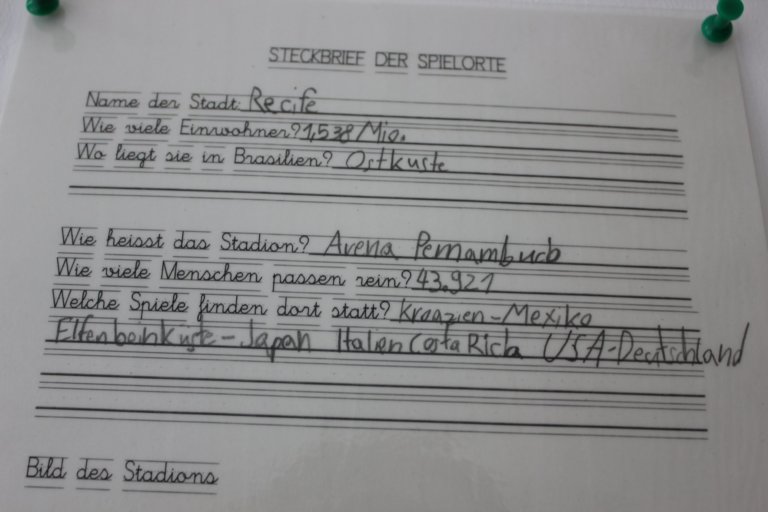 STECKBRIEF DER SPIELORTE
Name der Stadt: Recife
Wie viele Einwohner? 1,538 Mio.
Wo liegt sie in Brasilien? Ostküste
Wie heisst das Stadion? Arena Pernambuco
Wie viele Menschen passen rein? 43.921
Welche Spiele finden dort statt? Kroazien-Mexiko
Elfenbeinküste-Japan Italien Costa Rica USA-Deutschland
Bild des Stadions